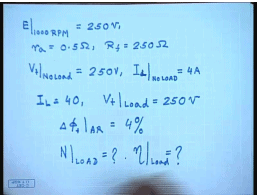 E|1000 RPM = 250V,
ra = 0.5Ω, Rf = 250Ω
Vt|NO LOAD = 250V, IL|NO LOAD = 4A
IL = 40, Vt|Load = 250V
Δφf|AR = 4%
N|LOAD = ? . η|Load = ?